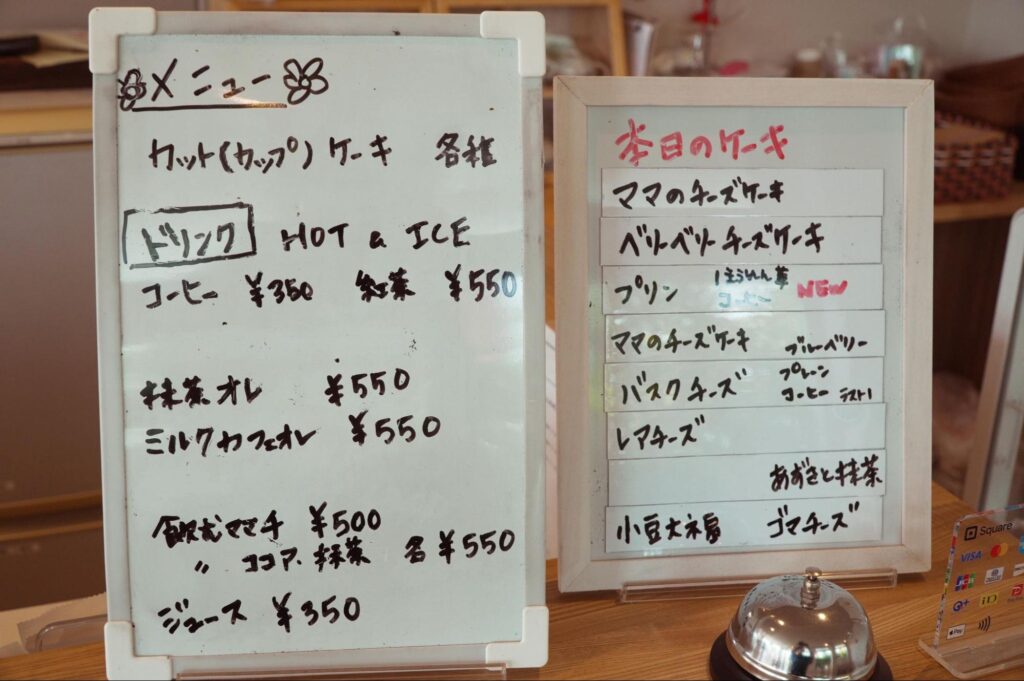 メニュー
カット(カップ)ケーキ 各種
ドリンク HOT & ICE
コーヒー ¥350 紅茶 ¥550
抹茶オレ ¥550
ミルクカフェオレ ¥550
飲むママチ ¥500
〃 ココア.抹茶 各¥550
ジュース ¥350
本日のケーキ
ママのチーズケーキ
ベリーベリーチーズケーキ
プリン ほうれん草 コーヒー NEW
ママのチーズケーキ ブルーベリー
バスクチーズ プレーン コーヒー ラスト1
レアチーズ
あずきと抹茶
小豆大福 ゴマチーズ
Square
VISA
JCB
iD
Pay